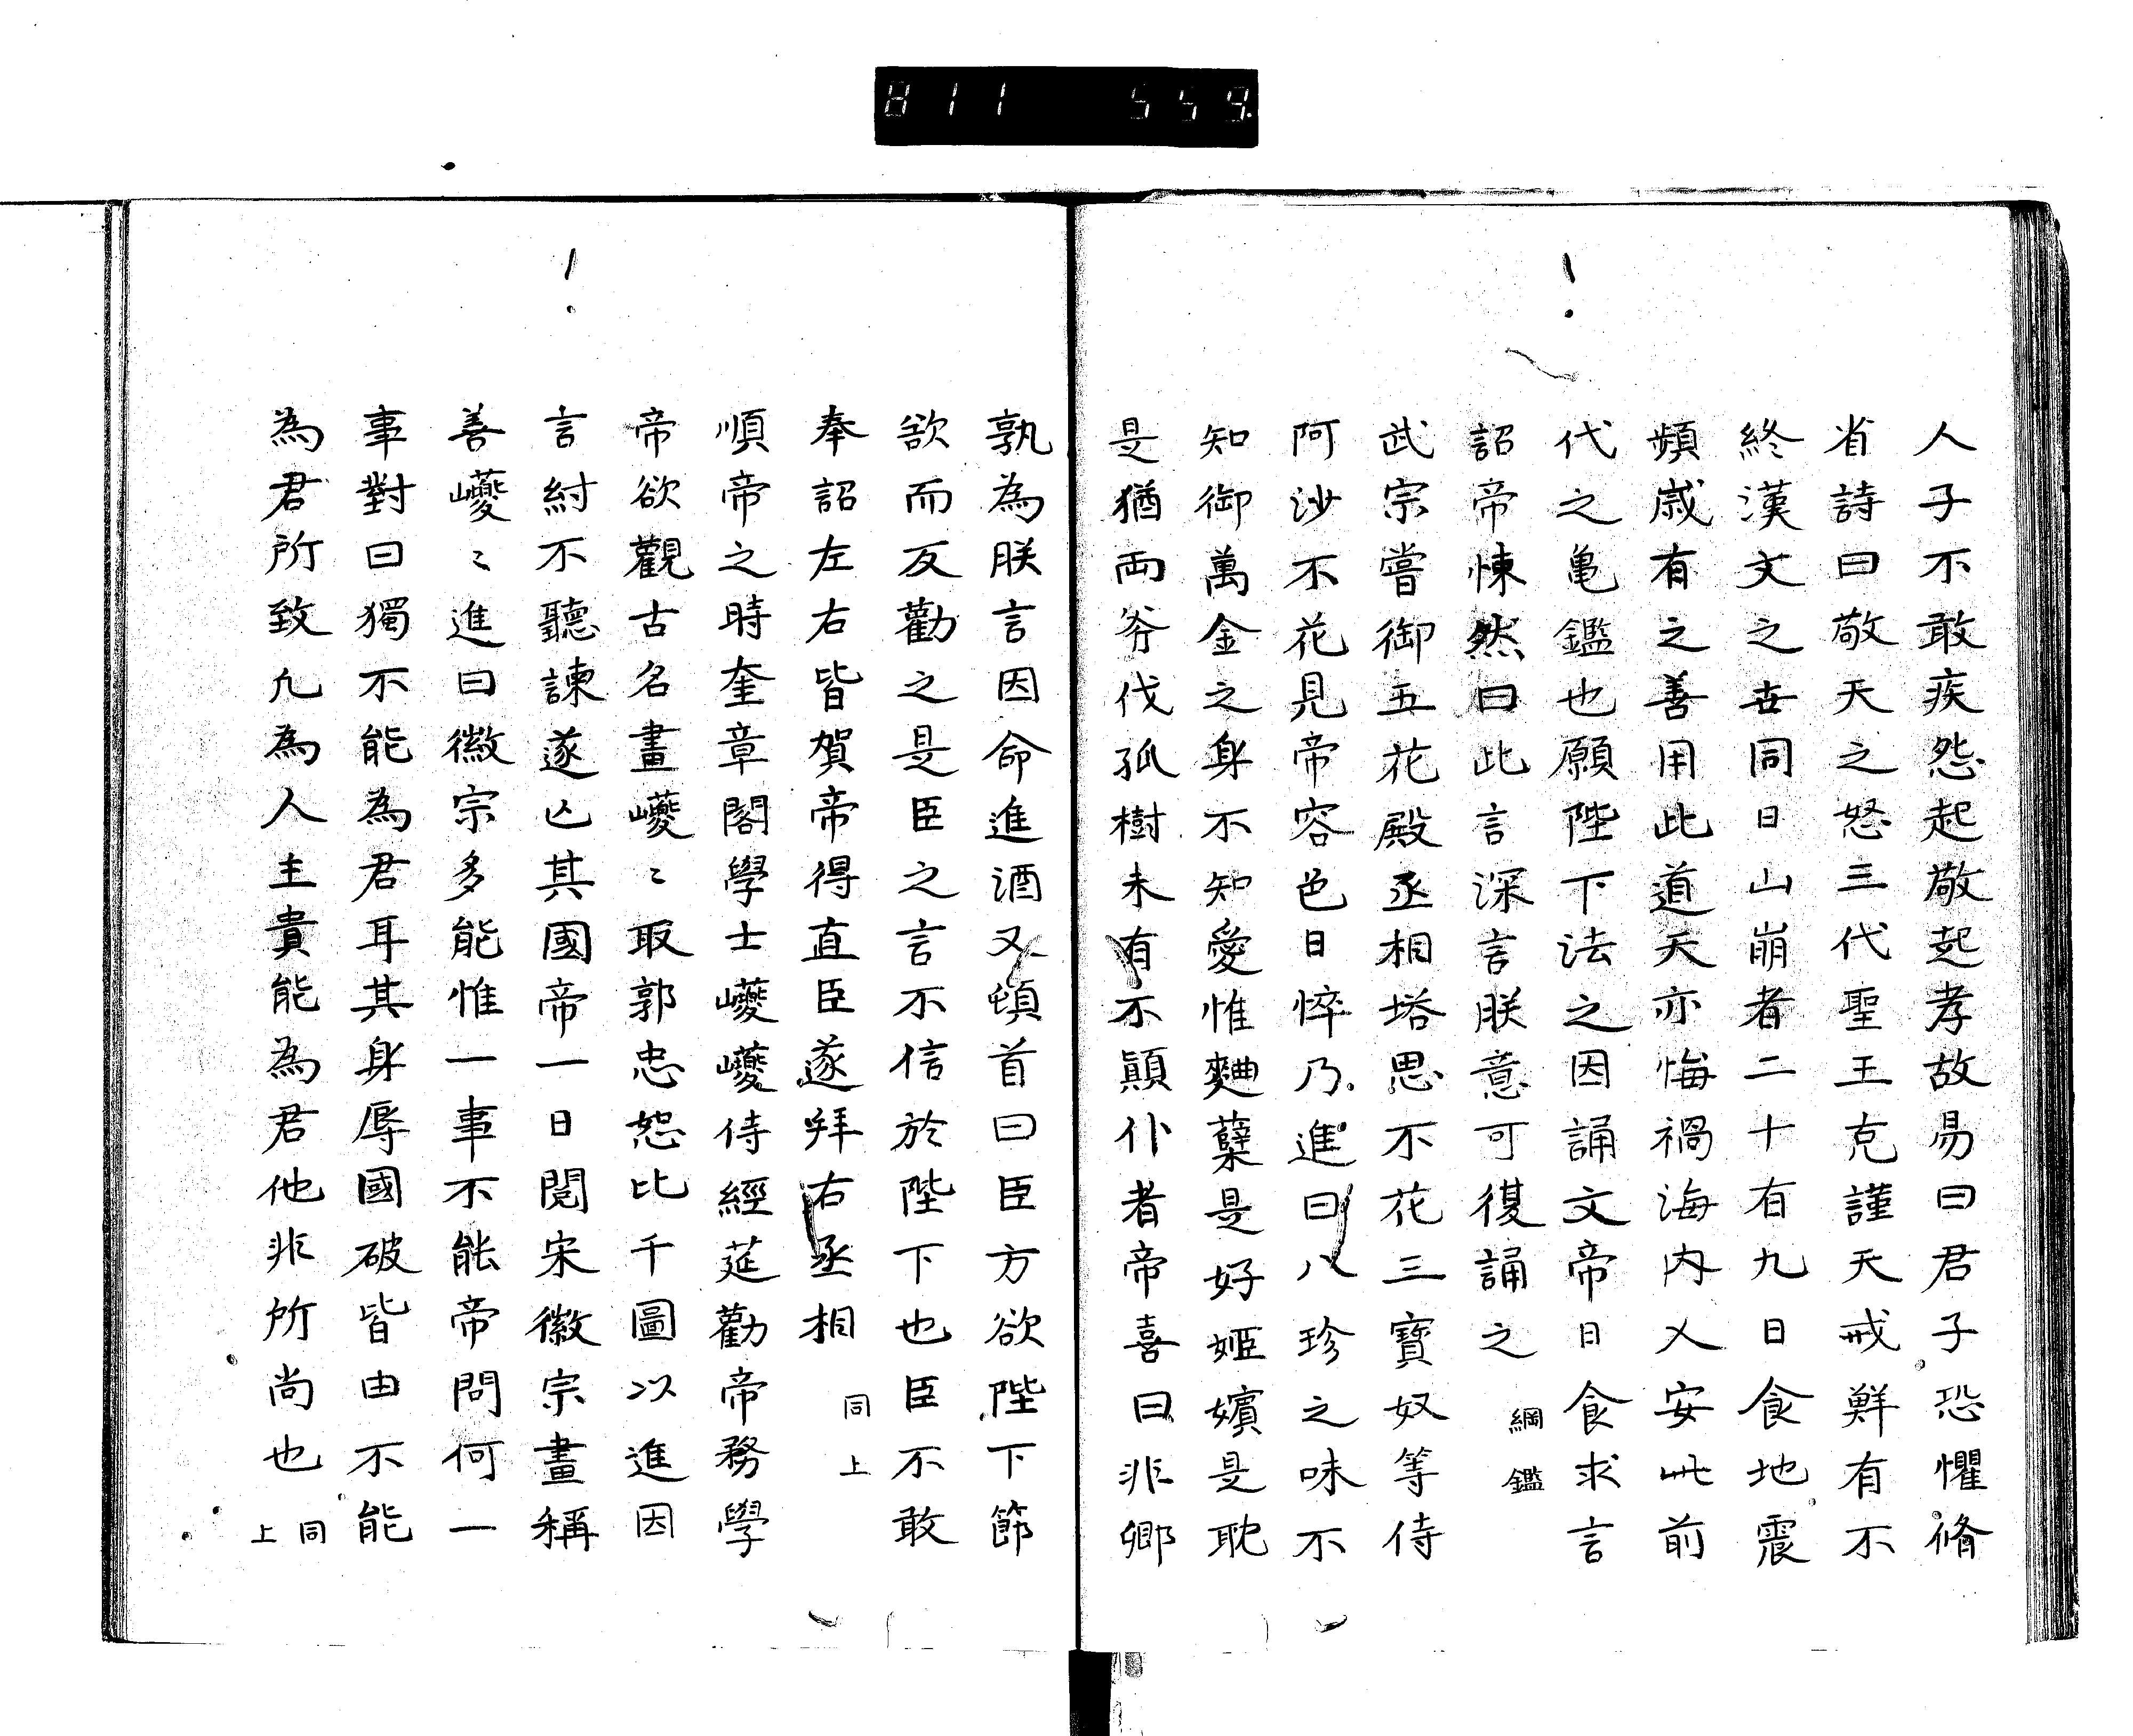 811 559.
人子不敢疾怨起敬起孝故易曰君子恐懼脩
省詩曰敬天之怒三代聖王克謹天戒鮮有不
終漢文之世同日山崩者二十有九日食地震
頻歲有之善用此道天亦悔禍海内乂安此前
代之亀鑑也願陛下法之因誦文帝日食求言
詔帝悚然曰此言深言朕意可復誦之 綱鑑
武宗嘗御五花殿丞相塔思不花三寶奴等侍
阿沙不花見帝容色日悴乃進曰八珍之味不
知御萬金之身不知愛惟麯櫱是好姬嬪是耽
是猶兩斧伐孤樹未有不顛仆者帝喜曰非卿
孰為朕言因命進酒又頓首曰臣方欲陛下節
欲而反勸之是臣之言不信於陛下也臣不敢
奉詔左右皆賀帝得直臣遂拜右丞相 同上
順帝之時奎章閣學士巙巙侍經莚勸帝務學
帝欲觀古名畫巙〻取郭忠恕比干圖以進因
言紂不聽諫遂亾其國帝一日閱宋徽宗畫稱
善巙〻進曰徽宗多能惟一事不能帝問何一
事對曰獨不能為君耳其身辱國破皆由不能
為君所致凢為人主貴能為君他非所尚也 同上